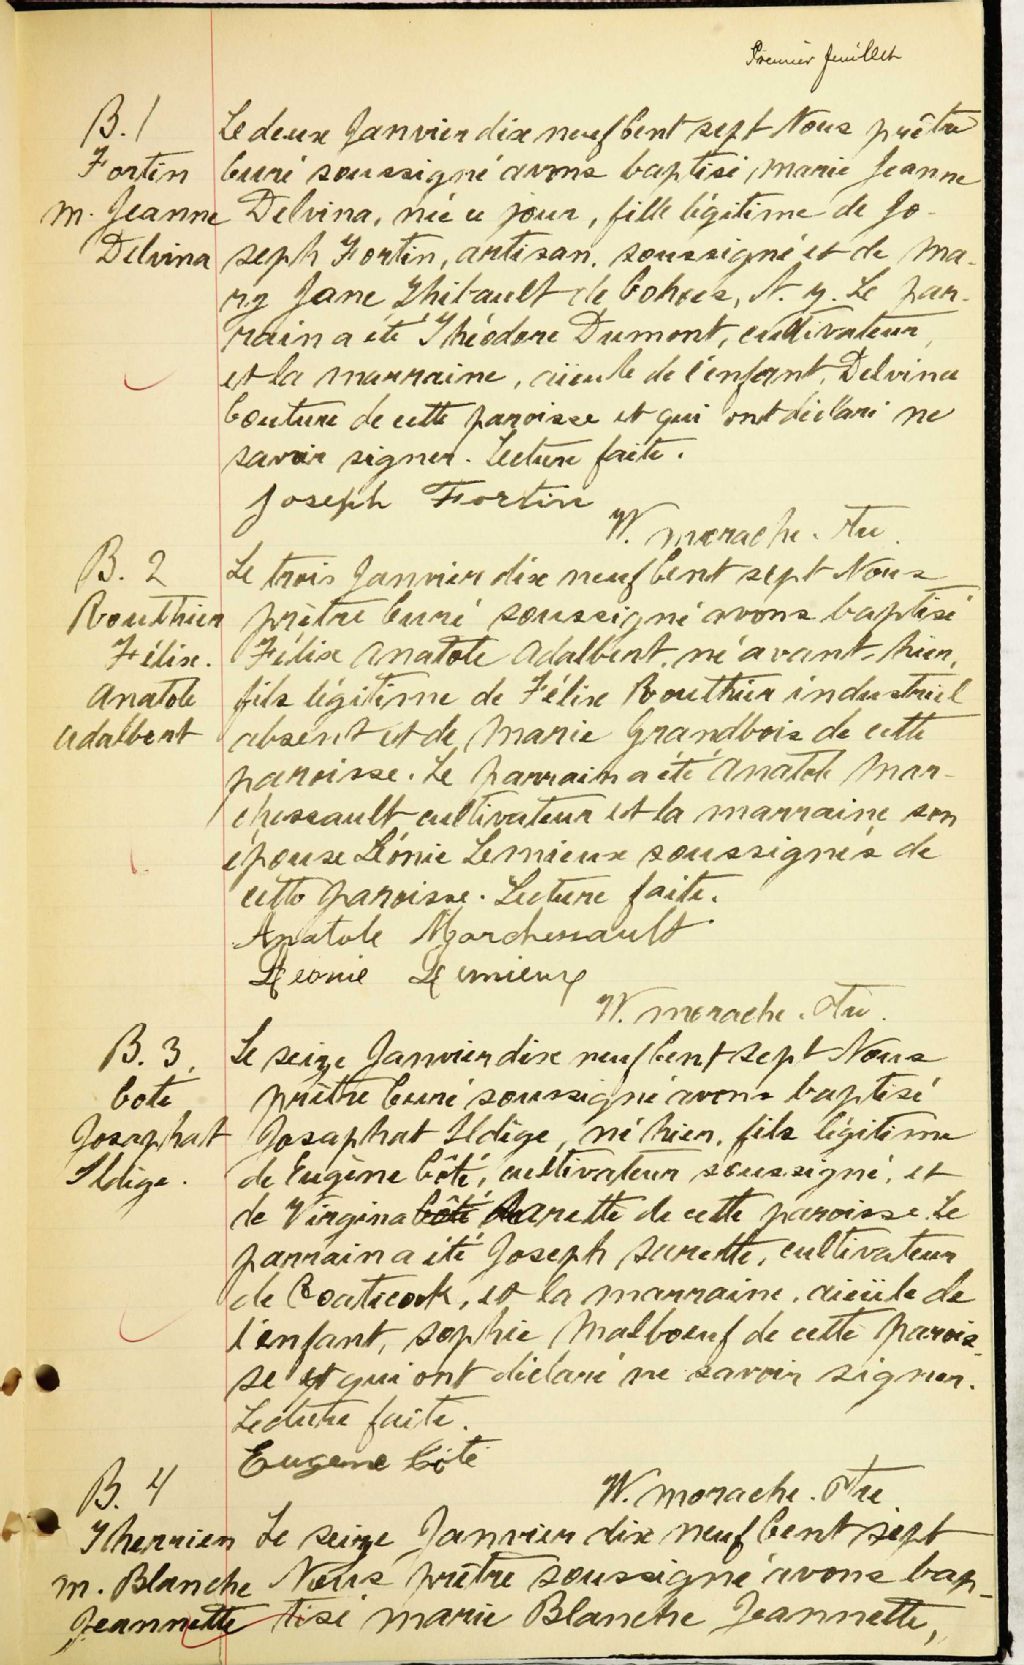 Premier feuillet
B. 1
Fortin
M. Jeanne
Delvina
Le deux Janvier dix neuf Cent sept Nous prêtre
Curé soussigné avons baptisé, Marie Jeanne
Delvina, née ce jour, fille légitime de Jo-
seph Fortin, artisan, soussigné et de Ma-
ry Jane Thibault de Cohoes, N. Y. Le par-
rain a été Théodore Dumont, cultivateur,
et la marraine, aïeule de l'enfant, Delvina
Couture de cette paroisse et qui ont déclaré ne
savoir signer. Lecture faite.
Joseph Fortin
W. Morache. Ptre.
B. 2
Routhier
Félix.
Anatole
Adalbert
Le trois Janvier dix neuf Cent sept Nous
prêtre Curé soussigné avons baptisé
Félix Anatole Adalbert, né avant-hier,
fils légitime de Félix Routhier industriel
absent et de Marie Grandbois de cette
paroisse. Le parrain a été Anatole Mar-
chessault cultivateur et la marraine son
épouse Léonie Lemieux soussignés de
cette paroisse. Lecture faite.
Anatole Marchessault
Leonie Lemieux
W. Morache. Ptre.
B. 3.
Coté
Josaphat
Ildige.
Le seize Janvier dix neuf Cent sept Nous
prêtre Curé soussigné avons baptisé
Josaphat Ildige, né hier, fils légitime
de Eugène Côté, cultivateur soussigné, et
de Virgina Côté Sarette de cette paroisse. Le
parrain a été Joseph Sarette, cultivateur
de Coaticook, et la marraine, aïeule de
l'enfant, Sophie Malboeuf de cette parois-
se et qui ont déclaré ne savoir signer.
Lecture faite.
Eugene Côté
W. Morache. Ptre
B. 4
Therrien
M. Blanche
Jeannette
Le seize Janvier dix neuf Cent sept
Nous prêtre soussigné avons bap-
tisé Marie Blanche Jeannette,